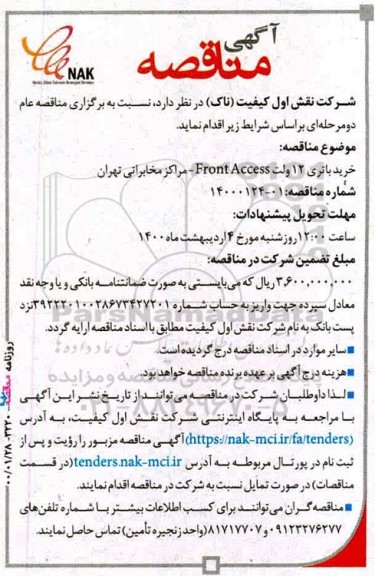 آگهی
مناقصه
NAK
شرکت نقش اول کیفیت (ناک) در نظر دارد، نسبت به برگزاری مناقصه عام
دومرحله‌ای براساس شرایط زیر اقدام نماید.
موضوع مناقصه:
خرید باتری ۱۲ ولت Front Access - مراکز مخابراتی تهران
شماره مناقصه: ۰۱-۱۴۰۰۰۱۲۴
مهلت تحویل پیشنهادات:
ساعت ۱۲:۰۰ روز شنبه مورخ ۴ اردیبهشت ماه ۱۴۰۰
مبلغ تضمین شرکت در مناقصه:
۳,۶۰۰,۰۰۰,۰۰۰ ریال که می‌بایستی به صورت ضمانتنامه بانکی و یا وجه نقد
معادل سپرده جهت واریز به حساب شماره ۳۹۲۲۲۰۱۰۰۲۸۶۷۳۴۲۷۲۰۱ نزد
پست بانک به نام شرکت نقش اول کیفیت مطابق با اسناد مناقصه ارایه گردد.
■ سایر موارد در اسناد مناقصه درج گردیده است.
■ هزینه درج آگهی بر عهده برنده مناقصه خواهد بود.
■ لذا داوطلبان شرکت در مناقصه می‌توانند از تاریخ نشر این آگهی
با مراجعه به پایگاه اینترنتی شرکت نقش اول کیفیت، به آدرس
(https://nak-mci.ir/fa/tenders) آگهی مناقصه مزبور را رؤیت و پس از
ثبت نام در پورتال مربوطه به آدرس tenders.nak-mci.ir (در قسمت
مناقصات) در صورت تمایل نسبت به شرکت در مناقصه اقدام نمایند.
■ مناقصه گران می‌توانند برای کسب اطلاعات بیشتر با شماره تلفن‌های
۰۹۱۲۳۲۷۶۲۷۷ و ۸۱۷۱۷۷۰۷ (واحد زنجیره تأمین) تماس حاصل نمایند.
روزنامه
۰۰/۰۱/۲۸
ParsNamadData